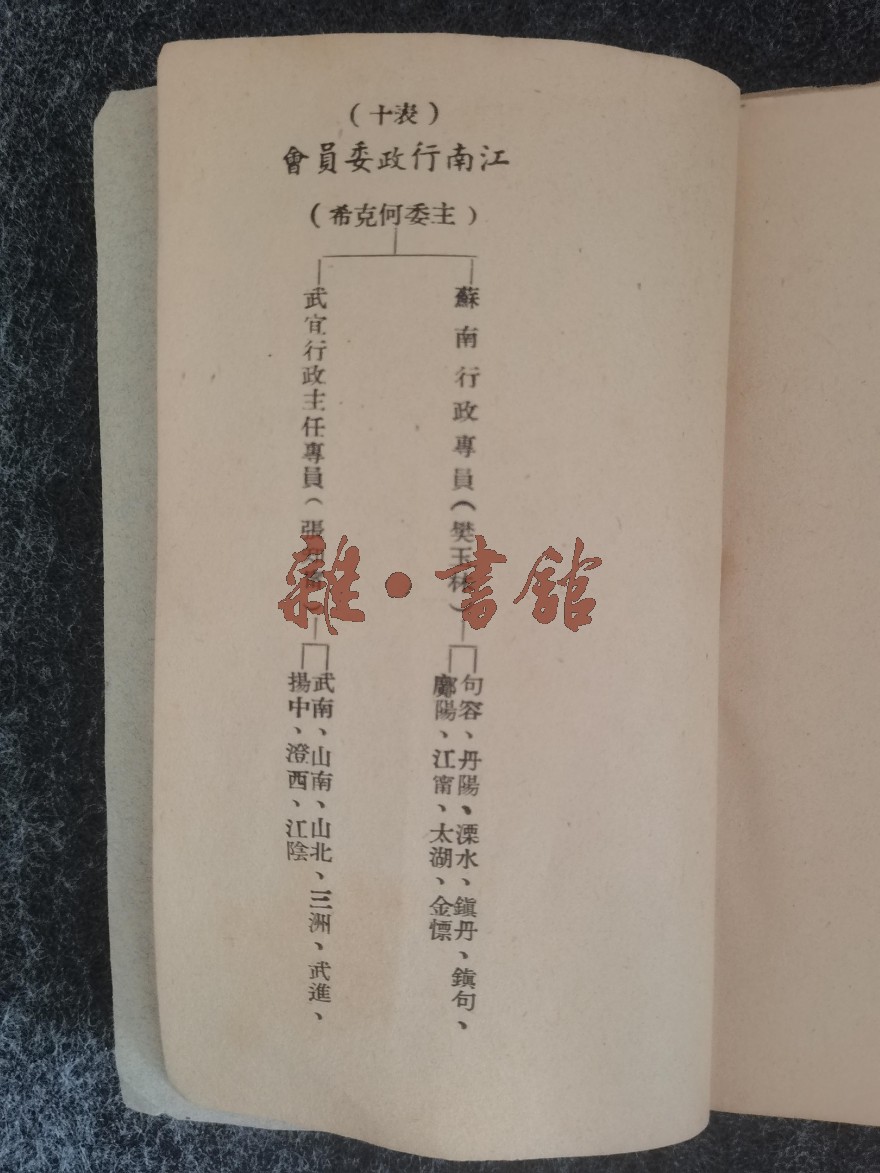 （表十）
江南行政委員會
（主委何克希）
蘇南行政專員（樊玉林）
句容、丹陽、溧水、鎭丹、鎭句、
陽、江甯、太湖、金慓
武宜行政主任專員（張）
武南、山南、山北、三洲、武進、
揚中、澄西、江陰
雜·書館